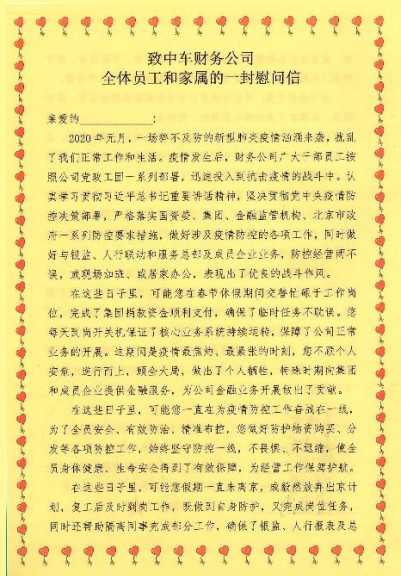 致中车财务公司
全体员工和家属的一封慰问信
亲爱的____________:
2020年元月，一场猝不及防的新型肺炎疫情汹涌来袭，扰乱
了我们正常工作和生活。疫情发生后，财务公司广大干部员工按
照公司党政工团一系列部署，迅速投入到抗击疫情的战斗中。认
真学习贯彻习近平总书记重要讲话精神，坚决贯彻党中央疫情防
控决策部署，严格落实国资委、集团、金融监管机构、北京市政
府一系列防控要求措施，做好涉及疫情防控的各项工作，同时做
好与银监、人行联动和服务总部及成员企业业务，防控经营两不
误，或现场加班、或居家办公，表现出了优良的战斗作风。
在这些日子里，可能您在春节休假期间交替忙碌于工作岗
位，完成了集团捐款资金顺利支付，确保了临时任务不耽误。您
每天到岗开关机保证了核心业务系统持续运转，保障了公司正常
业务的开展。这期间是疫情最焦灼、最紧张的时刻，您不顾个人
安危，逆行而上，顾全大局，做出了个人牺牲，特殊时期向集团
和成员企业提供金融服务，为公司金融业务开展做出了贡献。
在这些日子里，可能您一直在为疫情防控工作奋战在一线，
为了全员安全、有效防治、精准布控，您做好防护物资购买、分
发等各项防控工作，始终坚守防控一线，不畏惧、不退缩，使全
员身体健康、生命安全得到了有效保障，为经营工作保驾护航。
在这些日子里，可能您假期一直未离京，或毅然放弃出京计
划，复工后及时到岗工作，既做到自身防护，又完成岗位任务，
同时还帮助隔离同事完成部分工作，确保了银监、人行报表及总